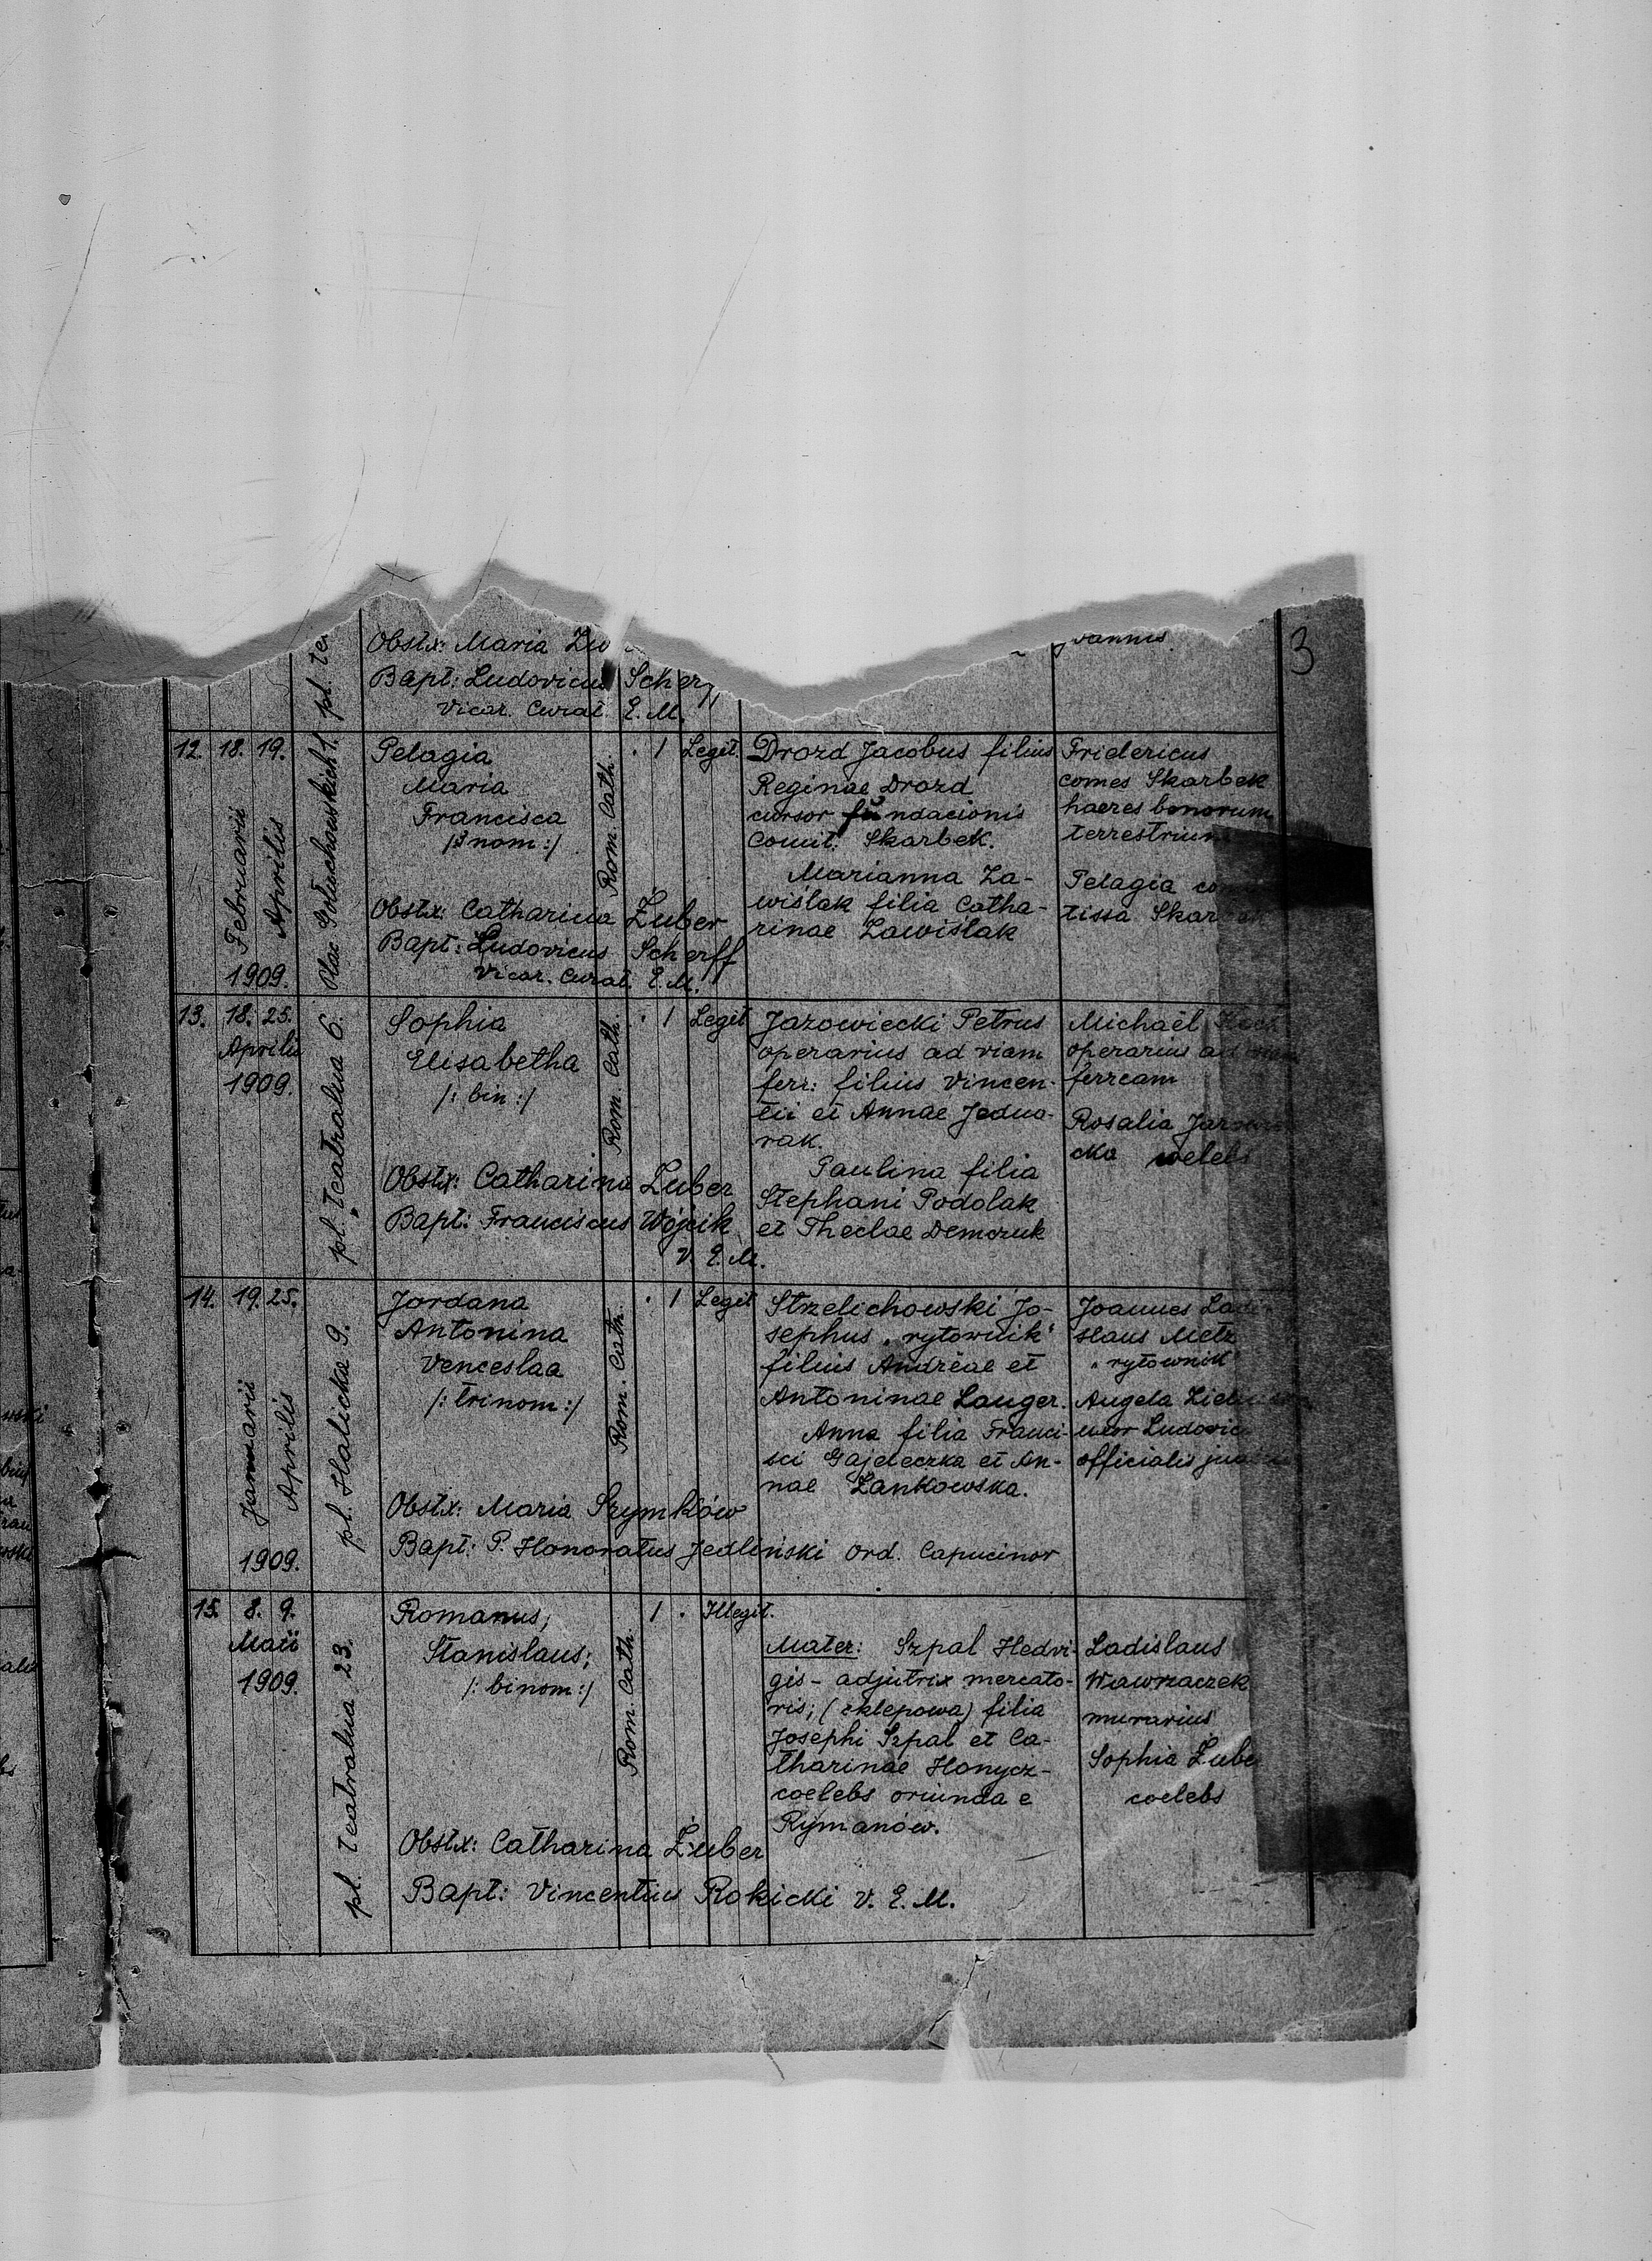 3
pl. te
Obstx: Maria Żu
Bapt: Ludovicus Scherf
Vicar. Curat. E. M.
12. 18. 19.
Februarii
Aprilis
1909.
Plac Gołuchowskich 1.
Pelagia
Maria
Francisca
/:3 nom:/
Rom. Cath.
. 1 Legit.
Obstx: Catharina Żuber
Bapt: Ludovicus Scherff
Vicar. Curat. E. M.
Drozd Jacobus filius
Reginae Drozd
cursor fundacionis
Comit. Skarbek.
Marianna Za-
wiślak filia Catha-
rinae Zawiślak
Fridericus
comes Skarbek
haeres bonorum
terrestrium
Pelagia
tissa Skarbek
13. 18. 25.
Aprilis
1909.
pl. Teatralna 6.
Sophia
Elisabetha
/: bin :/
Rom. Cath.
. 1 Legit
Obstx: Catharina Żuber
Bapt: Franciscus Wójcik
V. E. M.
Jazowiecki Petrus
operarius ad viam
ferr: filius Vincen-
tii et Annae Jedno-
rak.
Paulina filia
Stephani Podolak
et Theclae Demczuk
Michaël
operarius ad viam
ferream
Rosalia
cka coelebs
14. 19. 25.
Januarii
Aprilis
1909.
pl. Halicka 9.
Jordana
Antonina
Venceslaa
/: trinom :/
Rom. Cath.
. 1 Legit
Obstx: Maria Szymków
Bapt: P. Honoratus Jedliński Ord. Capucinor
Strzelichowski Jo-
sephus „rytownik“
filius Andreae et
Antoninae Langer.
Anna filia Franci-
sci Gajdeczka et An-
nae Zankowska.
Joannes Ladi-
slaus Metz
„rytownik“
Angela
uxor Ludovici
officialis
15. 8. 9.
Maii
1909.
pl. Teatralna 23.
Romanus,
Stanislaus;
/: binom :/
Rom. Cath.
1 . Illegit.
Obstx: Catharina Żuber
Bapt: Vincentius Rokicki V. E. M.
Mater: Szpal Hedvi-
gis - adjutrix mercato-
ris; (sklepowa) filia
Josephi Szpal et Ca-
tharinae Honycz-
coelebs oriunda e
Rymanów.
Ladislaus
Wawrzaczek
murarius
Sophia Żube
coelebs